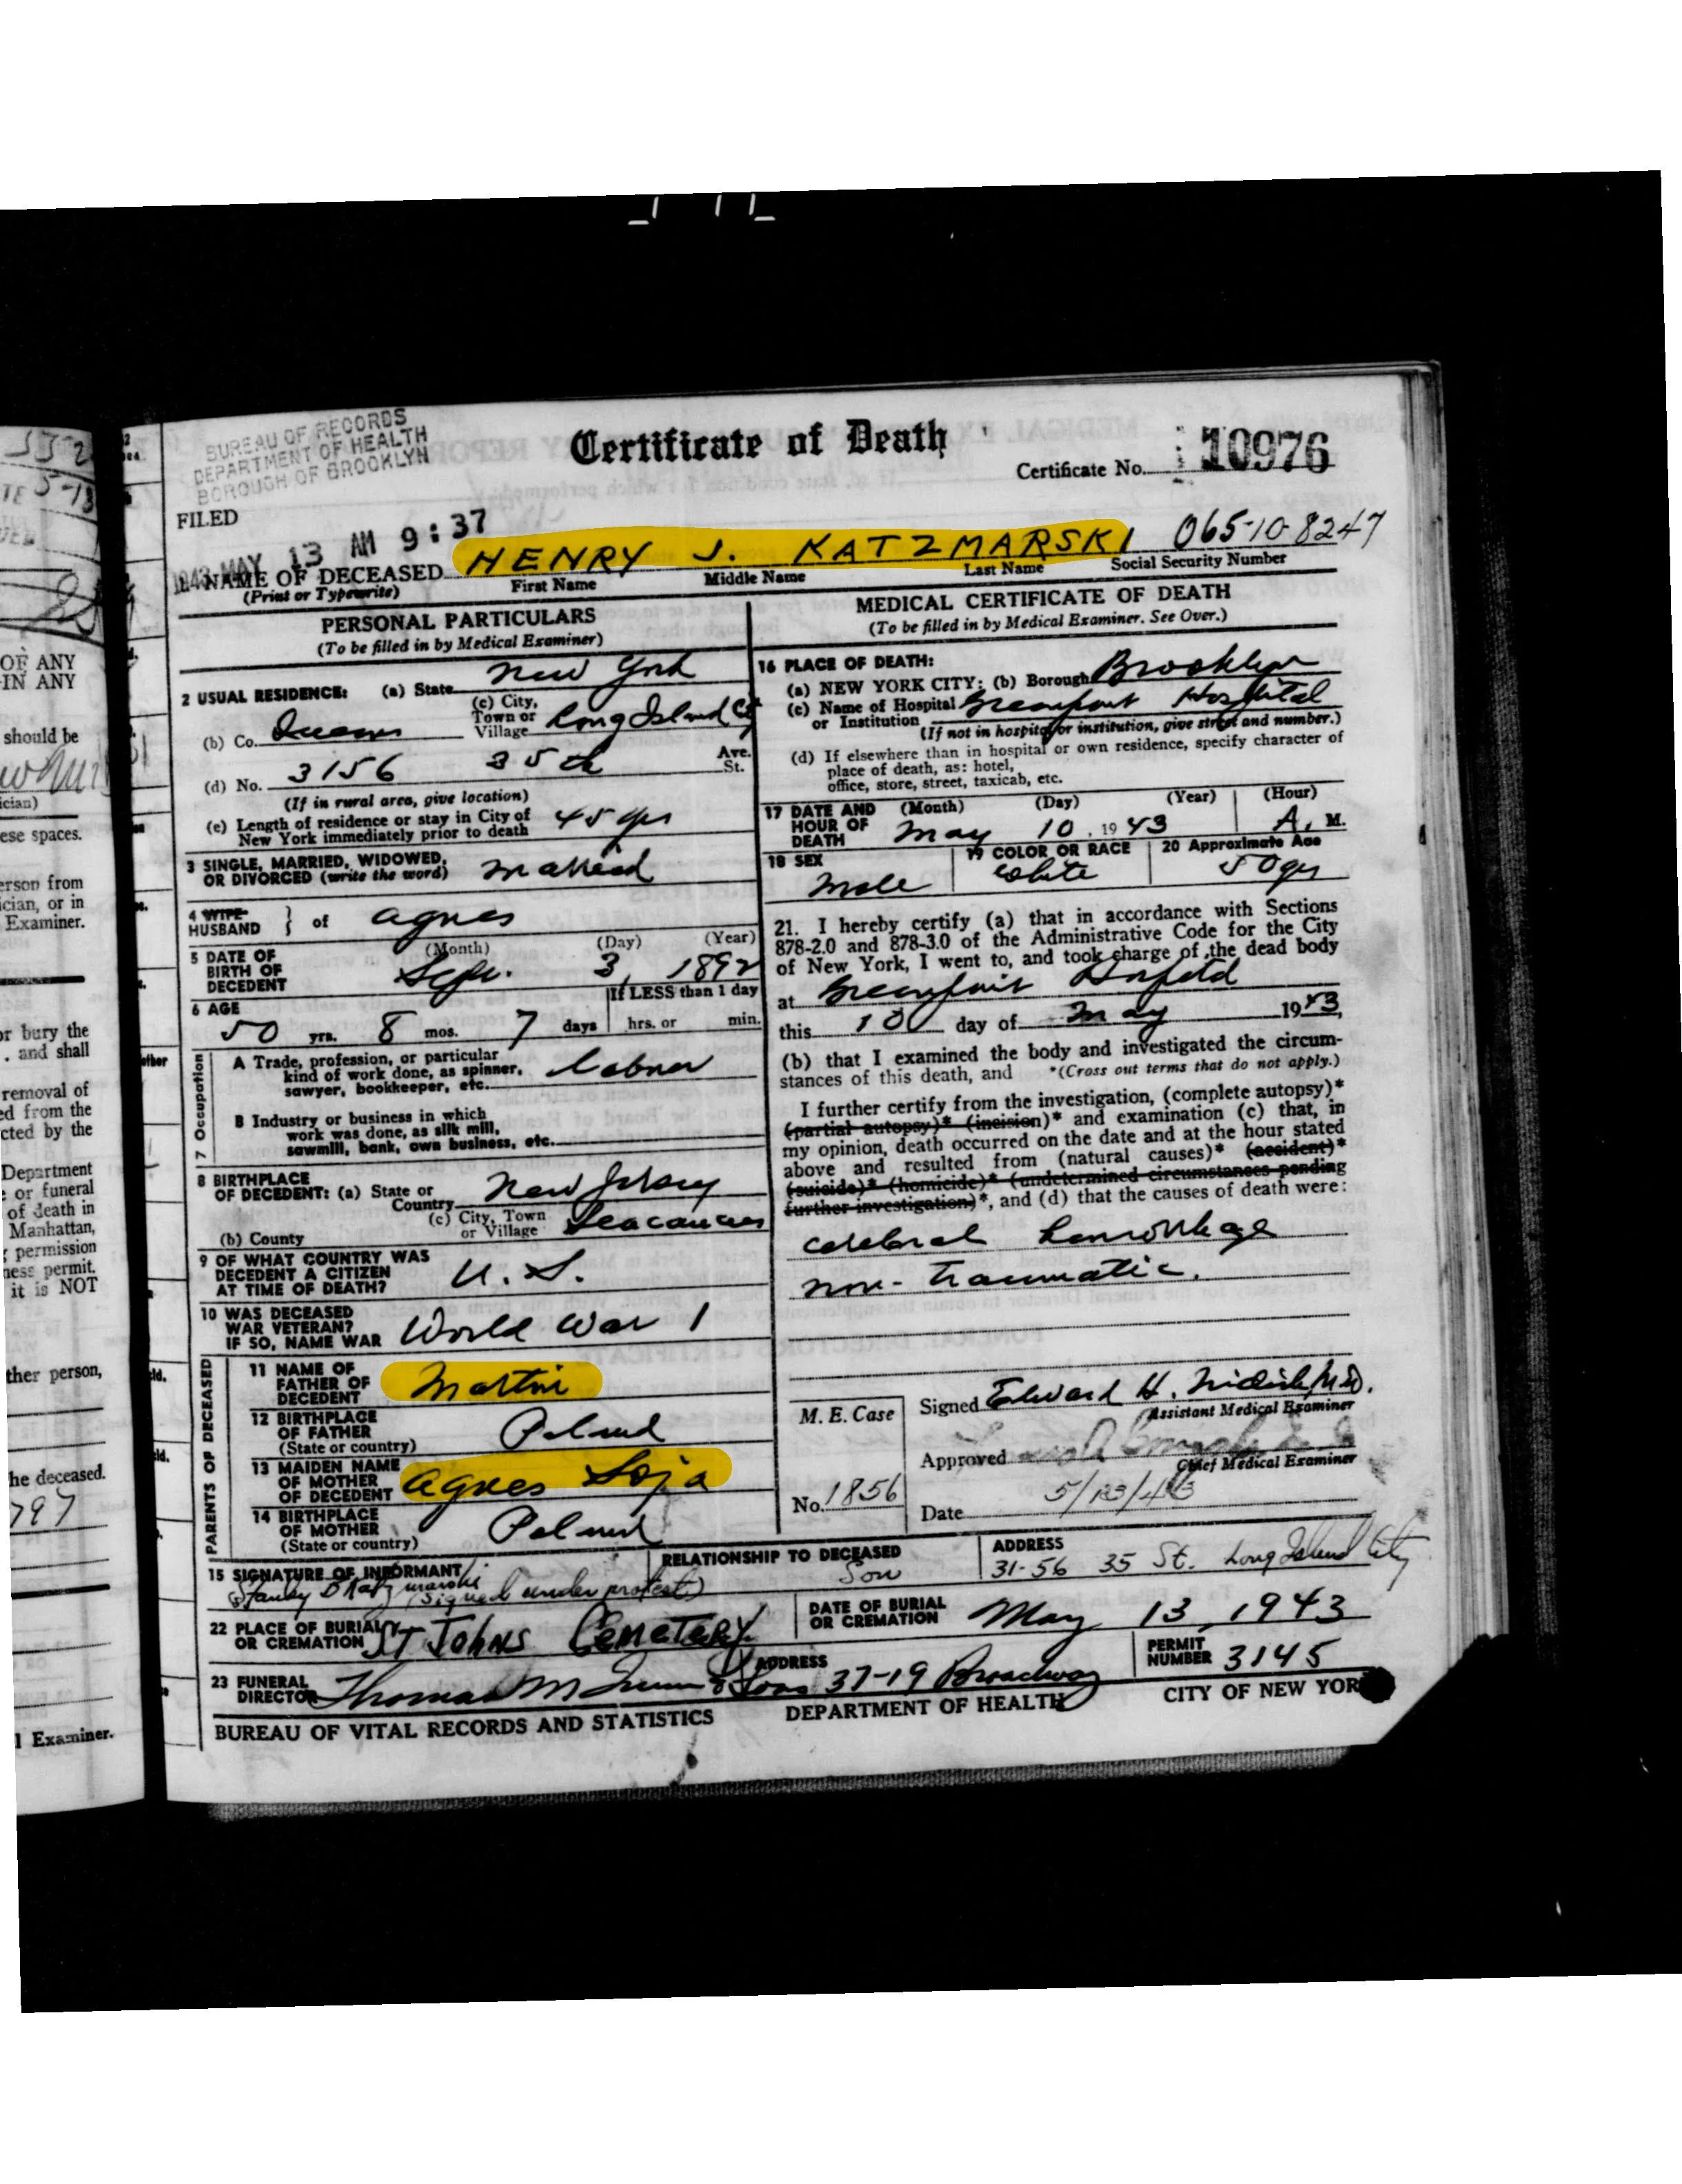 BUREAU OF RECORDS
DEPARTMENT OF HEALTH
BOROUGH OF BROOKLYN
Certificate of Death
Certificate No. 10976
FILED
1943 MAY 13 AM 9:37
NAME OF DECEASED HENRY J. KATZMARSKI 065-10-8247
(Print or Typewrite) First Name Middle Name Last Name Social Security Number
PERSONAL PARTICULARS
(To be filled in by Medical Examiner)
2 USUAL RESIDENCE: (a) State New York
(b) Co. Queens (c) City, Town or Village Long Island City
(d) No. 3156 35th Ave. St.
(If in rural area, give location)
(e) Length of residence or stay in City of
New York immediately prior to death 45 yrs
3 SINGLE, MARRIED, WIDOWED,
OR DIVORCED (write the word) Married
4 WIFE
HUSBAND } of Agnes
5 DATE OF
BIRTH OF
DECEDENT (Month) (Day) (Year)
Sept. 3, 1892
6 AGE If LESS than 1 day
50 yrs. 8 mos. 7 days hrs. or min.
7 Occupation
A Trade, profession, or particular
kind of work done, as spinner,
sawyer, bookkeeper, etc. Labner
B Industry or business in which
work was done, as silk mill,
sawmill, bank, own business, etc.
8 BIRTHPLACE
OF DECEDENT: (a) State or
Country New Jersey
(b) County (c) City, Town
or Village
9 OF WHAT COUNTRY WAS
DECEDENT A CITIZEN
AT TIME OF DEATH? U.S.
10 WAS DECEASED
WAR VETERAN?
IF SO, NAME WAR World War 1
PARENTS OF DECEASED
11 NAME OF
FATHER OF
DECEDENT Martin
12 BIRTHPLACE
OF FATHER
(State or country) Poland
13 MAIDEN NAME
OF MOTHER
OF DECEDENT Agnes Soja
14 BIRTHPLACE
OF MOTHER
(State or country) Poland
MEDICAL CERTIFICATE OF DEATH
(To be filled in by Medical Examiner. See Over.)
16 PLACE OF DEATH:
(a) NEW YORK CITY: (b) Borough Brooklyn
(c) Name of Hospital
or Institution Greenpoint Hospital
(If not in hospital or institution, give street and number.)
(d) If elsewhere than in hospital or own residence, specify character of
place of death, as: hotel,
office, store, street, taxicab, etc.
17 DATE AND
HOUR OF
DEATH (Month) (Day) (Year) (Hour)
May 10, 1943 A. M.
18 SEX 19 COLOR OR RACE 20 Approximate Age
Male White 50 yrs
21. I hereby certify (a) that in accordance with Sections
878-2.0 and 878-3.0 of the Administrative Code for the City
of New York, I went to, and took charge of the dead body
at Greenpoint Hospital
this 10 day of May 1943,
(b) that I examined the body and investigated the circum-
stances of this death, and *(Cross out terms that do not apply.)
I further certify from the investigation, (complete autopsy)*
(partial autopsy)* (incision)* and examination (c) that, in
my opinion, death occurred on the date and at the hour stated
above and resulted from (natural causes)* (accident)*
(suicide)* (homicide)* (undetermined circumstances pending
further investigation)*, and (d) that the causes of death were:
cerebral hemorrhage
non-traumatic.
M. E. Case
No. 1856
Signed Edward H. M.D.
Assistant Medical Examiner
Approved
Chief Medical Examiner
Date 5/13/43
15 SIGNATURE OF INFORMANT RELATIONSHIP TO DECEASED ADDRESS
Stanley B Katzmarski (Signed under protest) Son 31-56 35 St. Long Island City
22 PLACE OF BURIAL
OR CREMATION ST JOHNS CEMETERY DATE OF BURIAL
OR CREMATION May 13, 1943
23 FUNERAL
DIRECTOR Thomas M & Sons ADDRESS 37-19 Broadway PERMIT
NUMBER 3145
BUREAU OF VITAL RECORDS AND STATISTICS DEPARTMENT OF HEALTH CITY OF NEW YORK
OF ANY
IN ANY
should be
ician)
ese spaces.
erson from
ician, or in
Examiner.
or bury the
. and shall
removal of
ed from the
cted by the
Department
or funeral
of death in
Manhattan,
permission
ness permit.
it is NOT
ther person,
he deceased.
797
l Examiner.